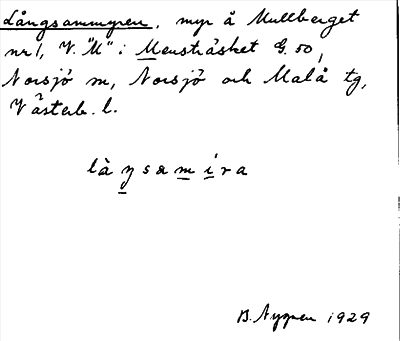 Långsammyren, myr å Mullberget
nr 1, V. "M" i Mensträsket G. 50,
Norsjö sn, Norsjö och Malå tg,
Västerb. l.
làŋsamira
B. Nygren 1929